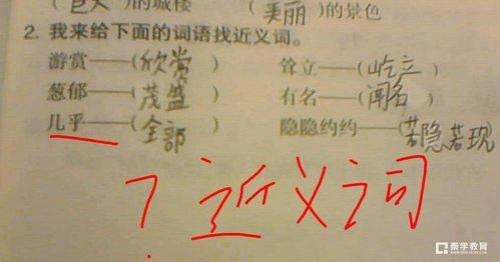 (巨大)的城楼 (美丽)的景色
2. 我来给下面的词语找近义词。
游赏——(欣赏) 耸立——(屹立)
葱郁——(茂盛) 有名——(闻名)
几乎——(全部) 隐隐约约——(若隐若现)
? 近义词
秦学教育